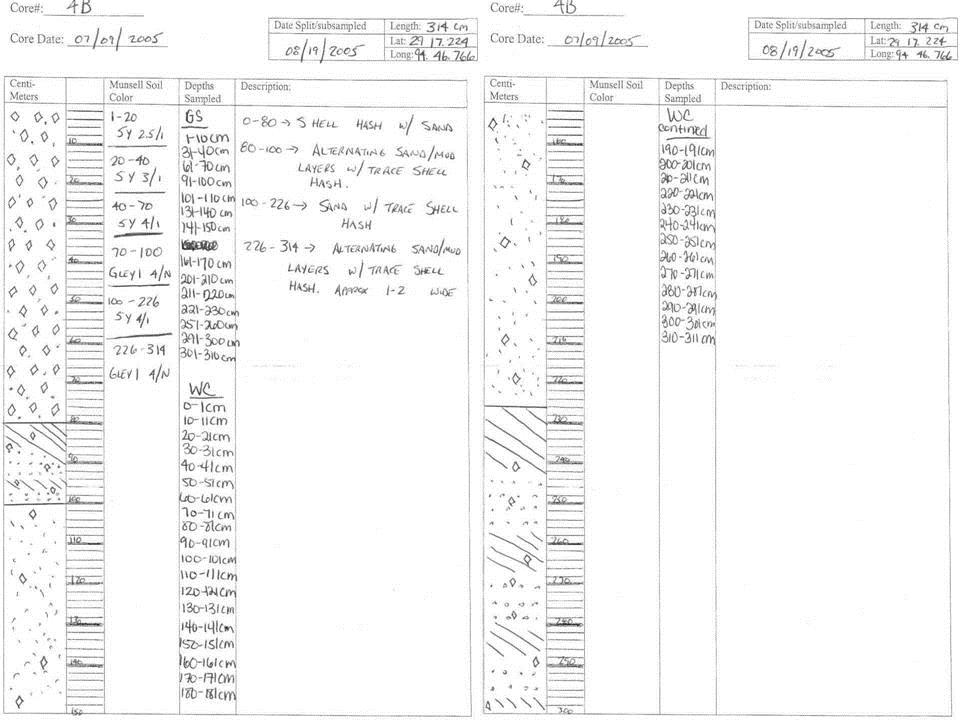 Core#: 4B
Core Date: 07/09/2005
Date Split/subsampled
08/19/2005
Length: 314 cm
Lat: 29 17.224
Long: 94 46.766
Centi-Meters
Munsell Soil Color
Depths Sampled
Description:
1-20
5Y 2.5/1
20-40
5Y 3/1
40-70
5Y 4/1
70-100
GLEY1 4/N
100-226
5Y 4/1
226-314
GLEY1 4/N
GS
1-10cm
31-40cm
61-70cm
91-100cm
101-110cm
131-140cm
141-150cm
161-170cm
201-210cm
211-220cm
221-230cm
251-260cm
291-300cm
301-310cm
WC
0-1cm
10-11cm
20-21cm
30-31cm
40-41cm
50-51cm
60-61cm
70-71cm
80-81cm
90-91cm
100-101cm
110-111cm
120-121cm
130-131cm
140-141cm
150-151cm
160-161cm
170-171cm
180-181cm
0-80 → SHELL HASH W/ SAND
80-100 → ALTERNATING SAND/MUD
LAYERS W/ TRACE SHELL
HASH.
100-226 → SAND W/ TRACE SHELL
HASH
226-314 → ALTERNATING SAND/MUD
LAYERS W/ TRACE SHELL
HASH. APPROX 1-2 WIDE
10
20
30
40
50
60
70
80
90
100
110
120
130
140
150
Core#: 4B
Core Date: 07/09/2005
Date Split/subsampled
08/19/2005
Length: 314 cm
Lat: 29 17. 224
Long: 94 46. 766
Centi-Meters
Munsell Soil Color
Depths Sampled
Description:
WC
contined
190-191cm
200-201cm
210-211cm
220-221cm
230-231cm
240-241cm
250-251cm
260-261cm
270-271cm
280-281cm
290-291cm
300-301cm
310-311cm
160
170
180
190
200
210
220
230
240
250
260
270
280
290
300